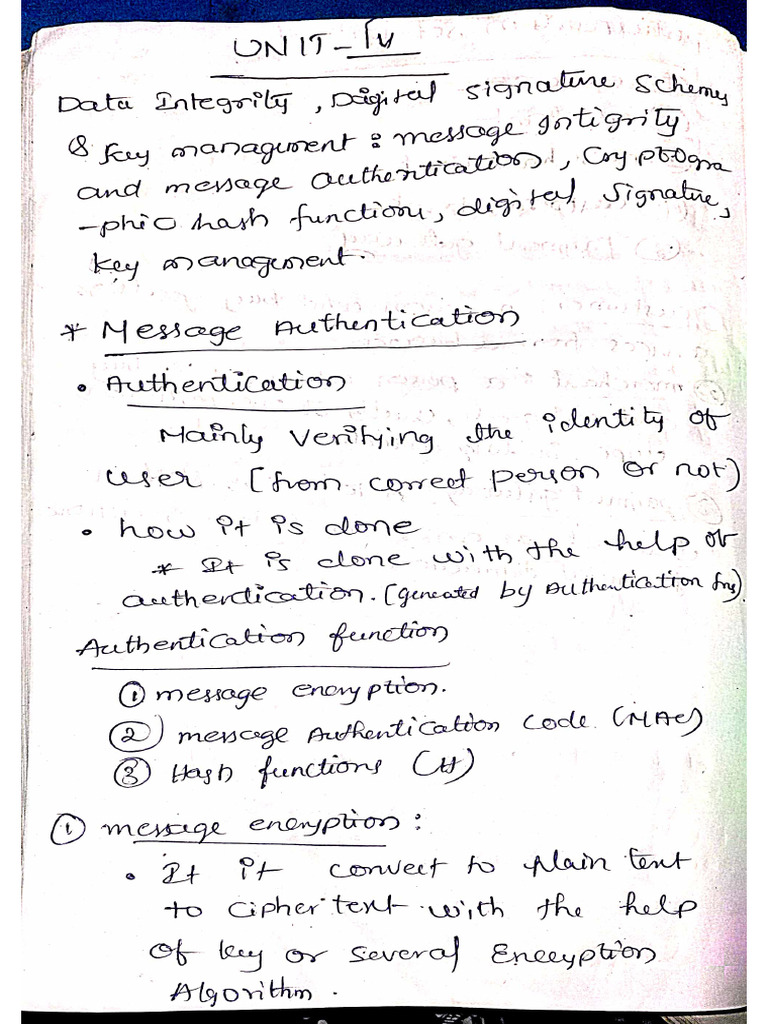 UNIT-IV
Data Integrity, Digital Signature Schemes
& key management: message Intigrity
and message authentication, Cryptogra
-phic hash function, digital Signature,
key management.
* Message Authentication
• Authentication
Mainly Verifying the identity of
user [from correct person or not)
• how it is done
* It is done with the help of
authentication. (generated by Authentication fns)
Authentication function
① message encryption.
② message Authentication Code (MAC)
③ Hash functions (H)
① message encryption:
• It it convert to plain text
to cipher text with the help
of key or several Encryption
Algorithm.